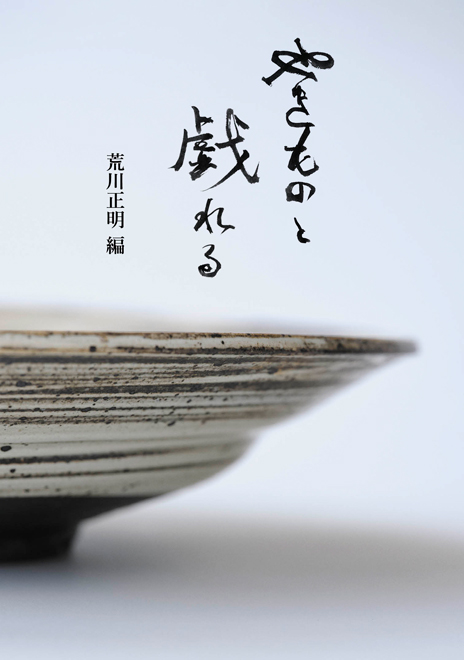 やきものと
戯れる
荒川正明 編